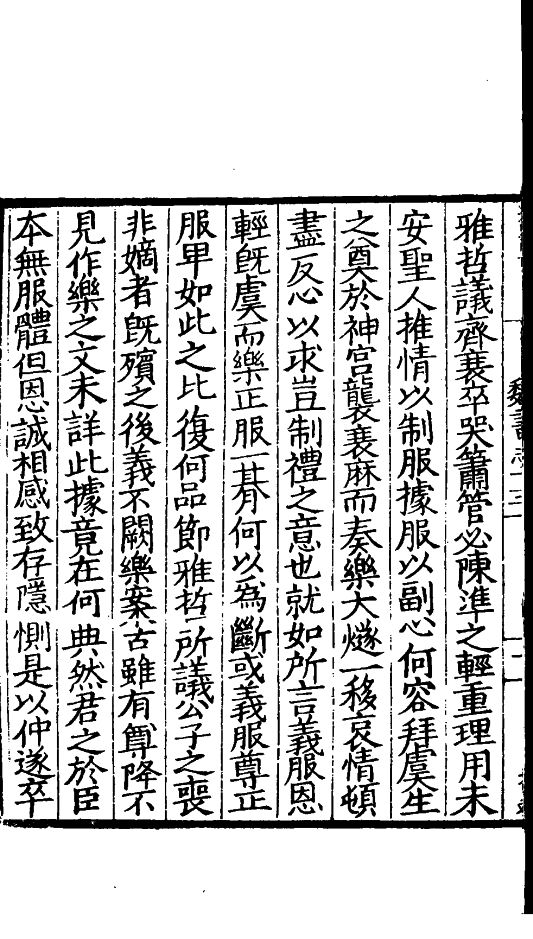 魏書志十三
雅哲議齊衰卒哭簫管必陳準之輕重理用未
安聖人推情以制服據服以副心何容拜虞生
之奠於神宮襲衰麻而奏樂大燧一移哀情頓
盡反心以求豈制禮之意也就如所言義服恩
輕旣虞而樂正服一朞何以爲斷或義服尊正
服卑如此之比復何品節雅哲所議公子之喪
非嫡者旣殯之後義不闕樂案古雖有尊降不
見作樂之文未詳此據竟在何典然君之於臣
本無服體但恩誠相感致存隱惻是以仲遂卒